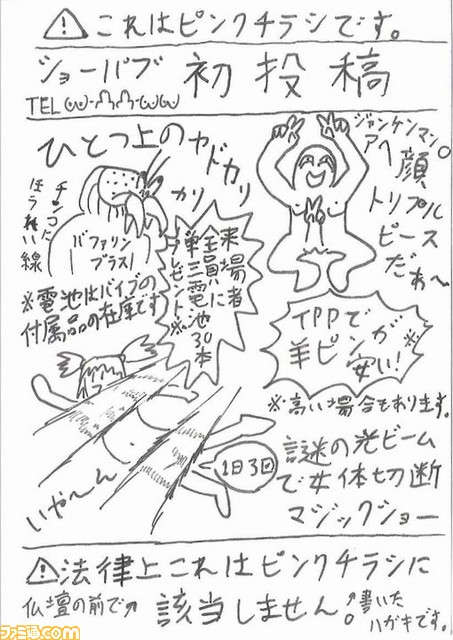 ⚠これはピンクチラシです。
ショーパブ 初投稿
TEL
ジャンケンマン。
アヘ顔
トリプル
ピース
だぁ〜
ひとつ上のヤドカリ
カリ
バファリン
プラス!
※電池はバイブの
付属品の在庫です
来場者
全員に
単三電池30本
プレゼント※
TPPで
羊ピンが
安い!
※高い場合もあります。
謎の光ビーム
で女体切断
マジックショー
1日3回
いや〜ん
⚠法律上これはピンクチラシに
該当しません。
仏壇の前で↗
↑書いた
ハガキです。
ファミ通.com